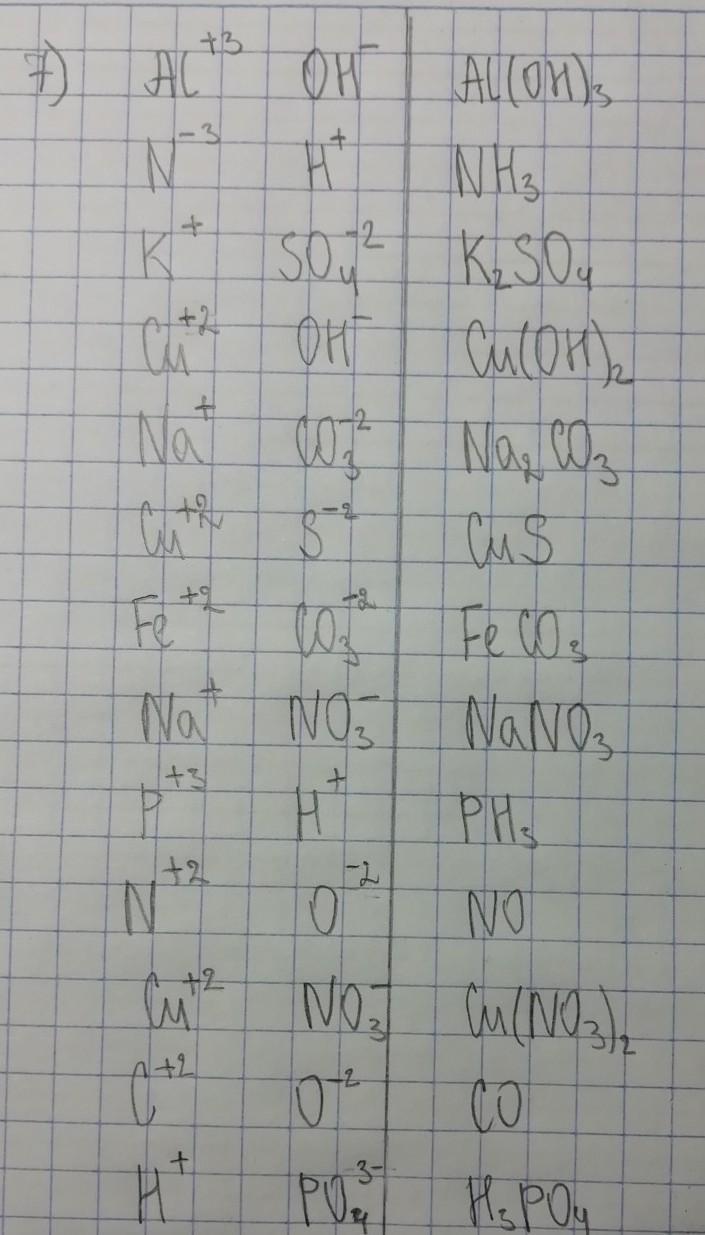 7) Al⁺³ OH⁻ Al(OH)₃
N⁻³ H⁺ NH₃
K⁺ SO₄⁻² K₂SO₄
Cu⁺² OH⁻ Cu(OH)₂
Na⁺ CO₃⁻² Na₂CO₃
Cu⁺² S⁻² CuS
Fe⁺² CO₃⁻² FeCO₃
Na⁺ NO₃⁻ NaNO₃
P⁺³ H⁺ PH₃
N⁺² O⁻² NO
Cu⁺² NO₃⁻ Cu(NO₃)₂
C⁺² O⁻² CO
H⁺ PO₄³⁻ H₃PO₄